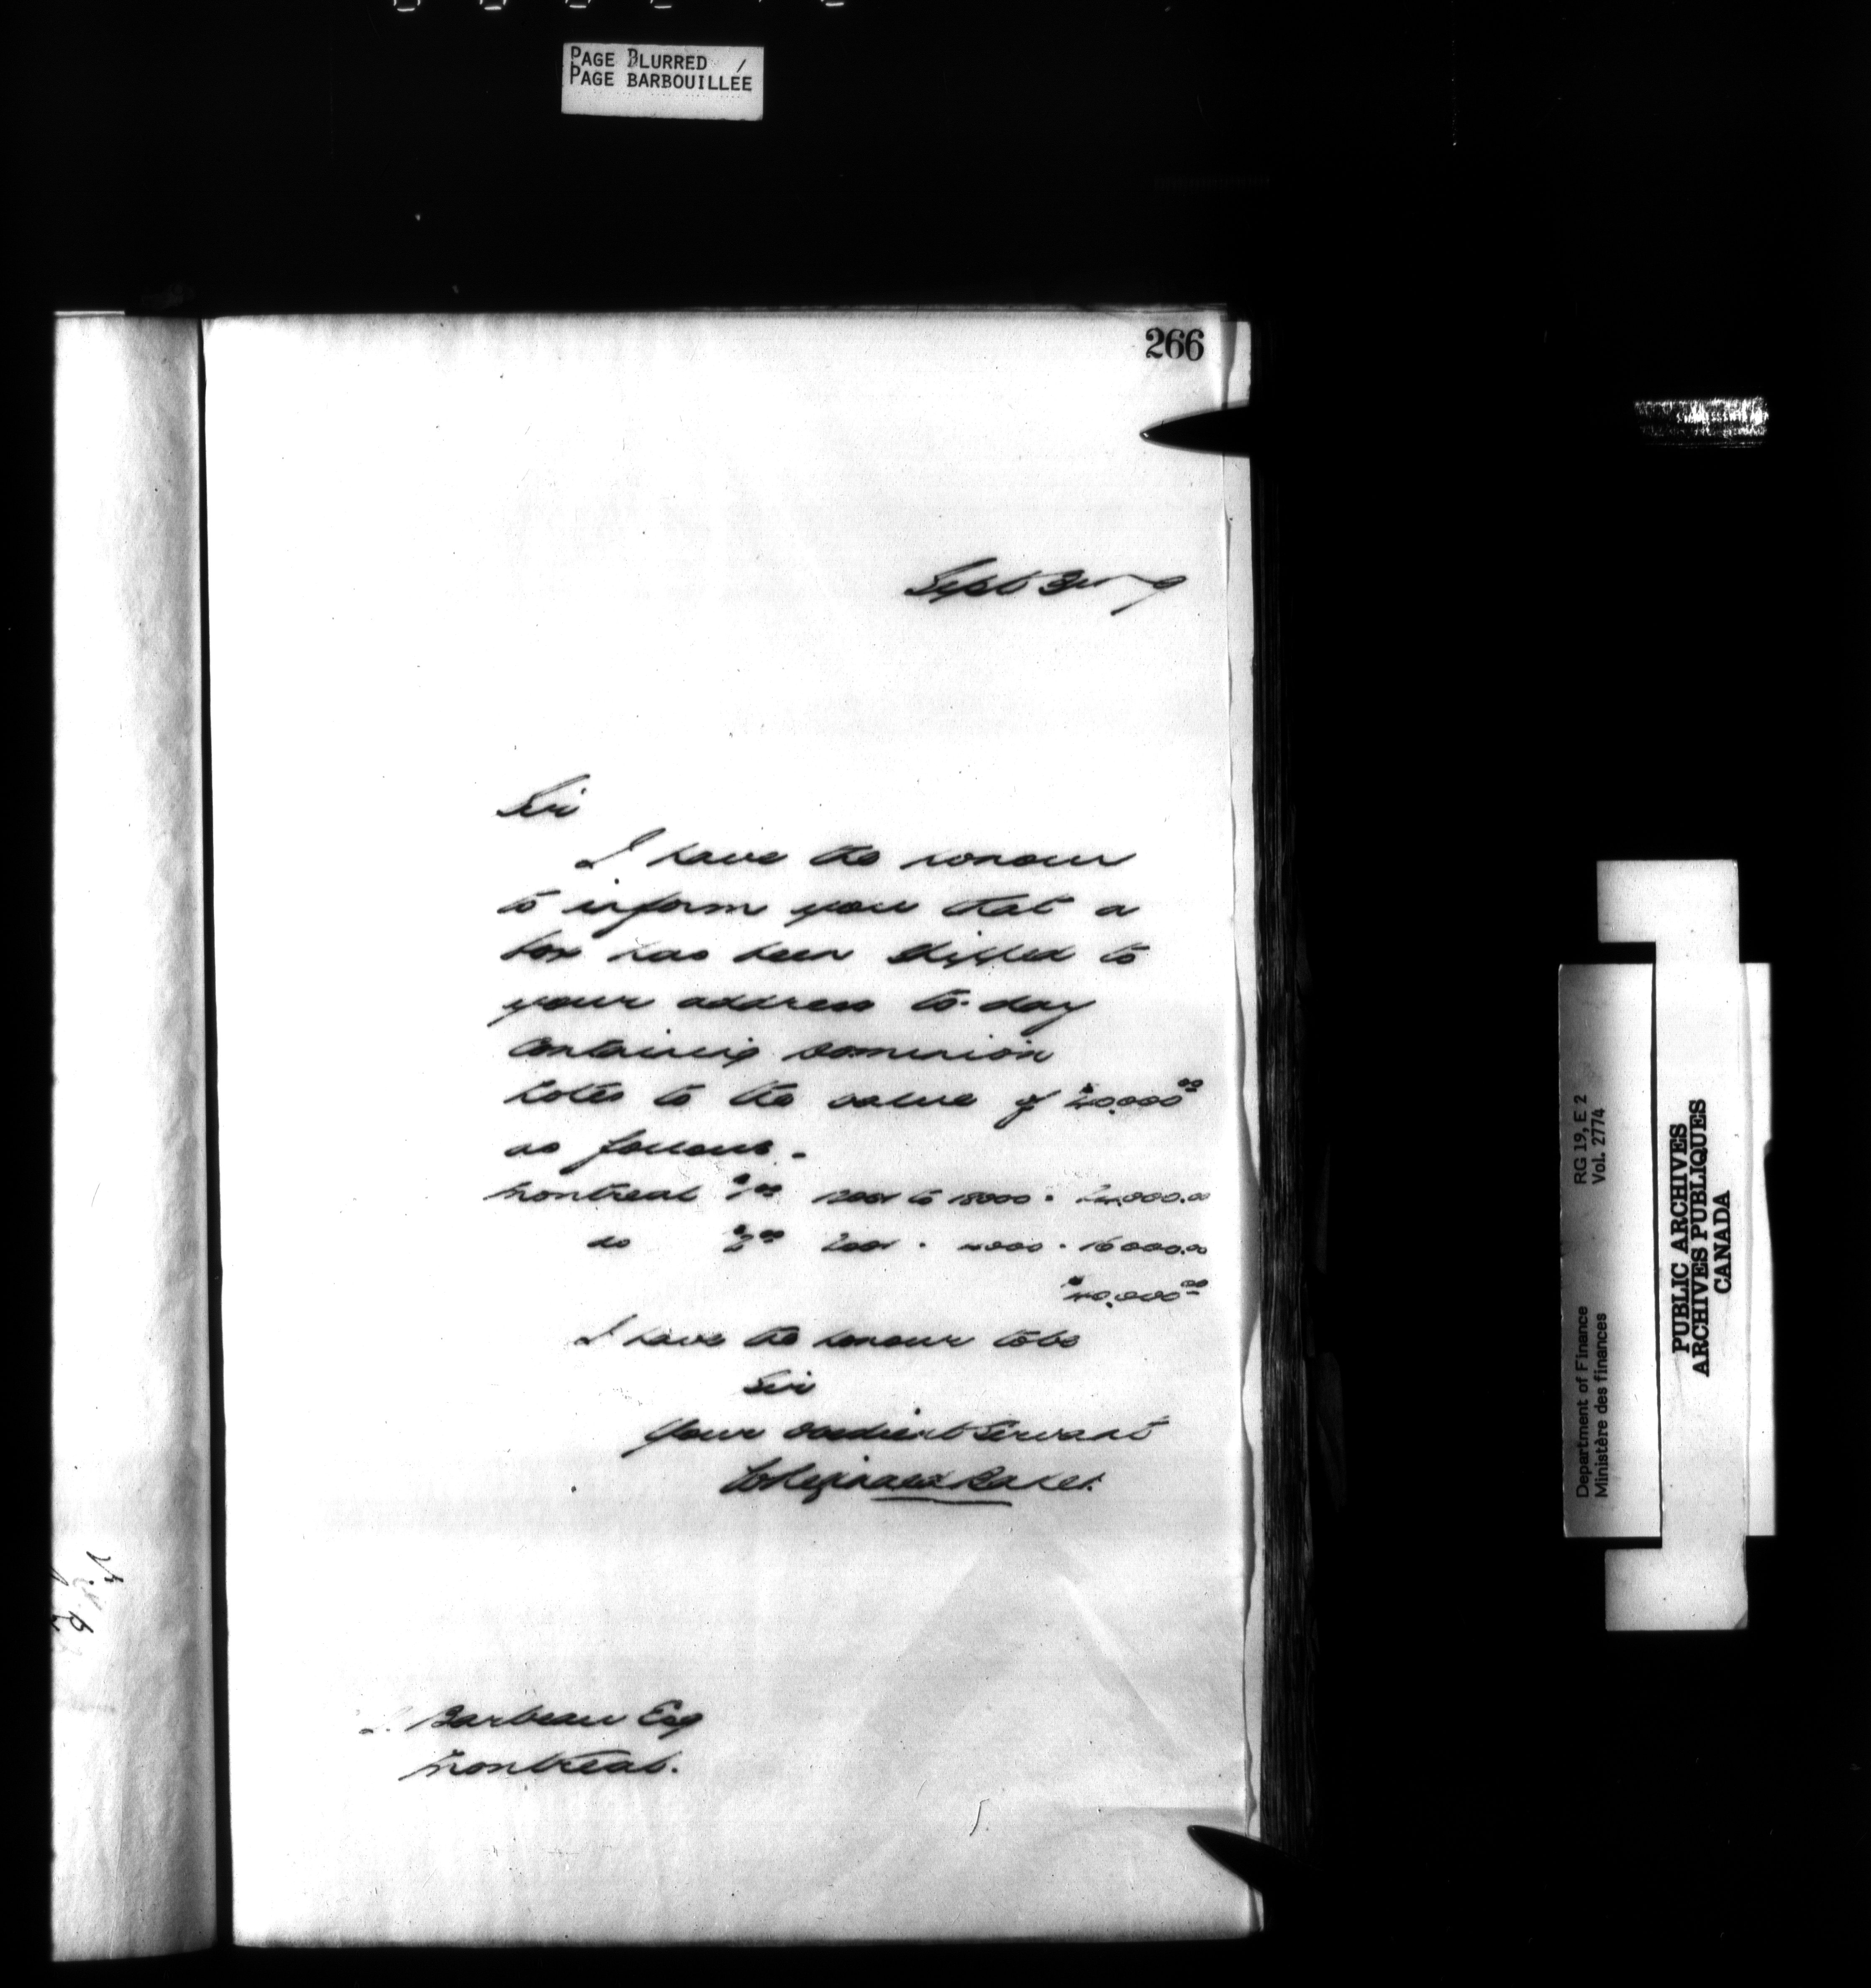 PAGE BLURRED /
PAGE BARBOUILLÉE
266
Sept 3rd
Sir
I have the honour
to inform you that a
box has been shipped to
your address to-day
containing Dominion
notes to the value of $40,000.00
as follows -
Montreal $1.00 12001 to 18000 - 24,000.00
do $2.00 2001 - 4000 - 16000.00
$40,000.00
I have the honour to be
Sir
Your Obedient Servant
W Reginald Baker.
Barbeau Esq
Montreal.
Department of Finance RG 19, E 2
Ministère des finances Vol. 2774
PUBLIC ARCHIVES
ARCHIVES PUBLIQUES
CANADA